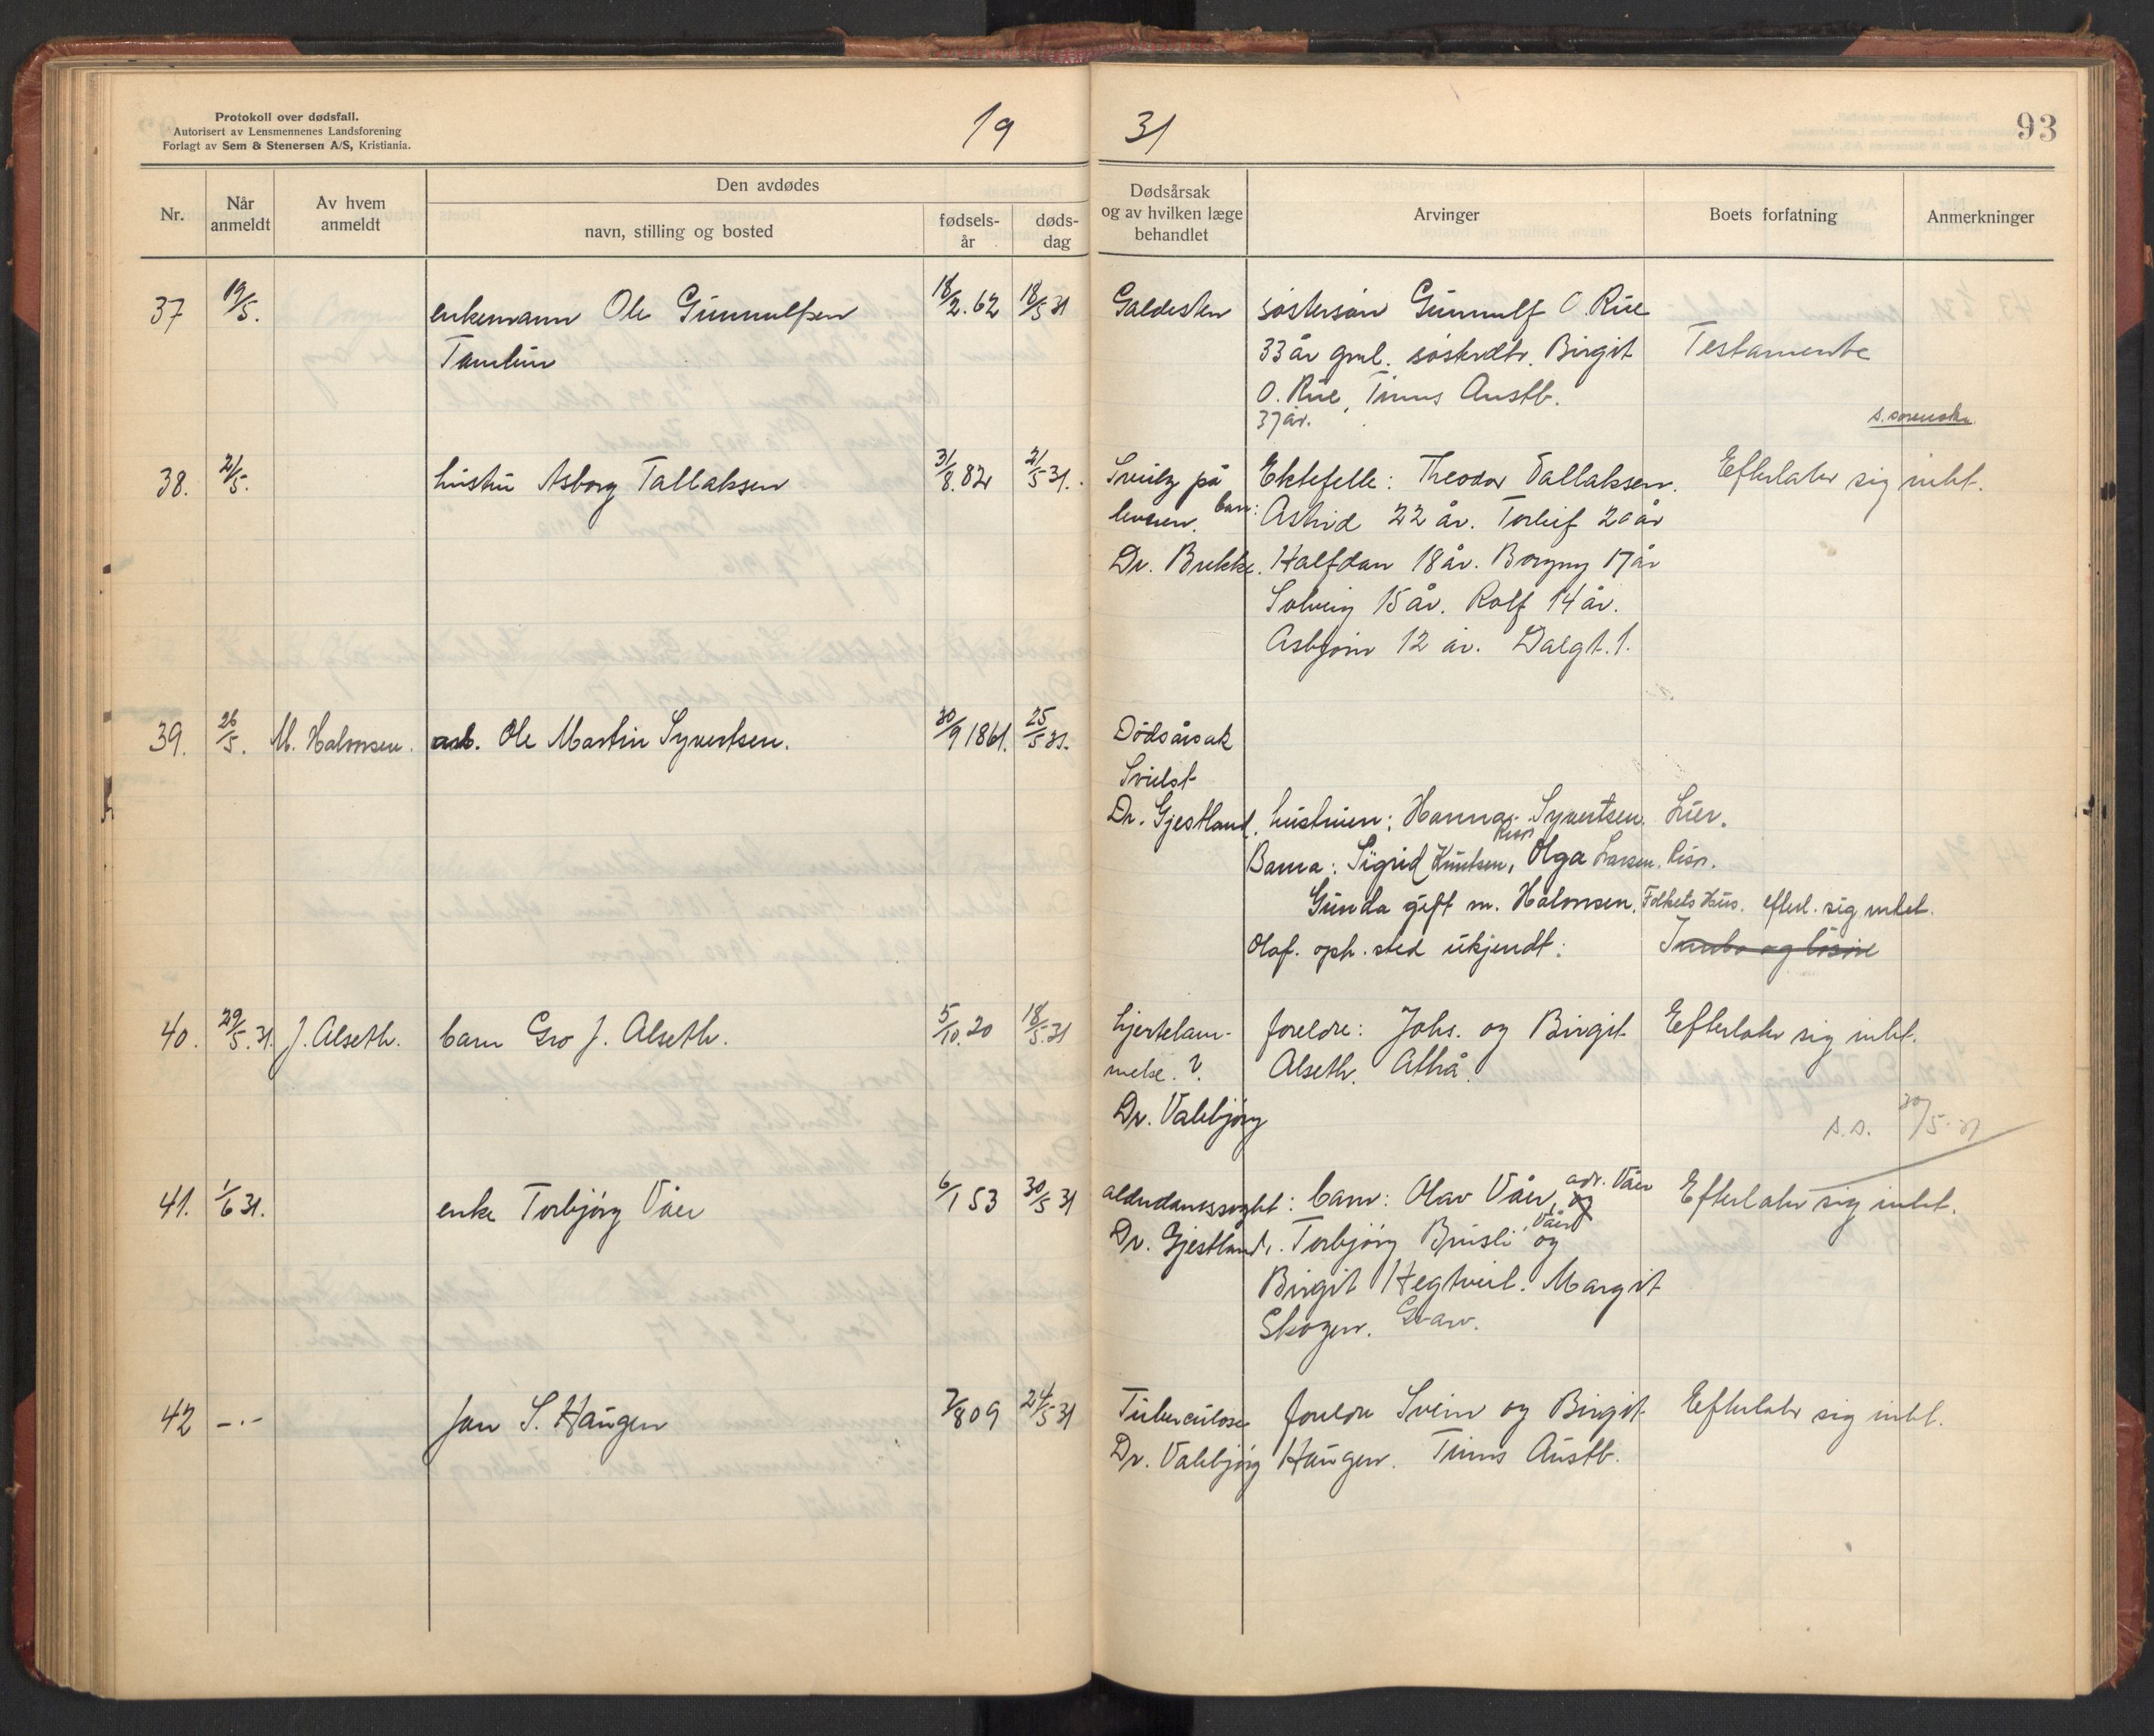 Protokoll over dødsfall.
Autorisert av Lensmennenes Landsforening
Forlagt av Sem & Stenersen A/S, Kristiania.
19 31
93
Nr.
Når anmeldt
Av hvem anmeldt
Den avdødes
navn, stilling og bosted
fødsels-år
døds-dag
Dødsårsak og av hvilken læge behandlet
Arvinger
Boets forfatning
Anmerkninger
37 19/5. enkemann Ole Gunnulfsen 18/2.62 18/5 31 Galdesten søstersøn Gunnulf O. Rue
33 år gml. søsterdtr. Birgit Testamente
O. Rue, Tinns Austb.
37 år.
38. 21/5. hustru Asborg Tallaksen 31/8.82 21/5 31. Svulst på Ektefelle: Theodor Tallaksen. Efterlater sig intet.
leveren. barn: Astrid 22 år. Torleif 20 år
Dr. Brekke. Halfdan 18 år. Borgny 17 år
Solveig 15 år. Rolf 14 år.
Asbjørn 12 år. Dalgt. 1.
39. 26/5. M. Halvorsen. arb. Ole Martin Syvertsen. 30/9 1861. 25/5 31. Dødsårsak
Svulst
Dr. Gjestland. hustruen: Hanna Syvertsen. Lier.
Barna: Sigrid Knutsen, Olga Larsen. Risør.
Gunda gift m. Halvorsen. Folkets Hus. efterl. sig intet.
Olaf. oph. sted ukjendt. Innbo og løsøre
40. 29/5.31. J. Alseth. barn Gro J. Alseth. 5/10.20 18/5.31 hjertelam- foreldre: Johs. og Birgit Efterlater sig intet.
melse. ? Alseth. Atrå.
Dr. Valebjørg
s.s. 30/5-31
41. 1/6 31. enke Torbjørg Våer 6/1 53 30/5 31 alderdomssvakt: barn: Olav Våer, og adr. Våer Efterlater sig intet.
Dr. Gjestland. Torbjørg Brusli Våer og
Birgit Hegtveit. Margit
Skogen.
42 -"- Jon S. Haugen 7/8 09 24/5 31 Tuberculose foreldre Svein og Birgit Efterlater sig intet.
Dr. Valebjørg Haugen. Tinns Austb.